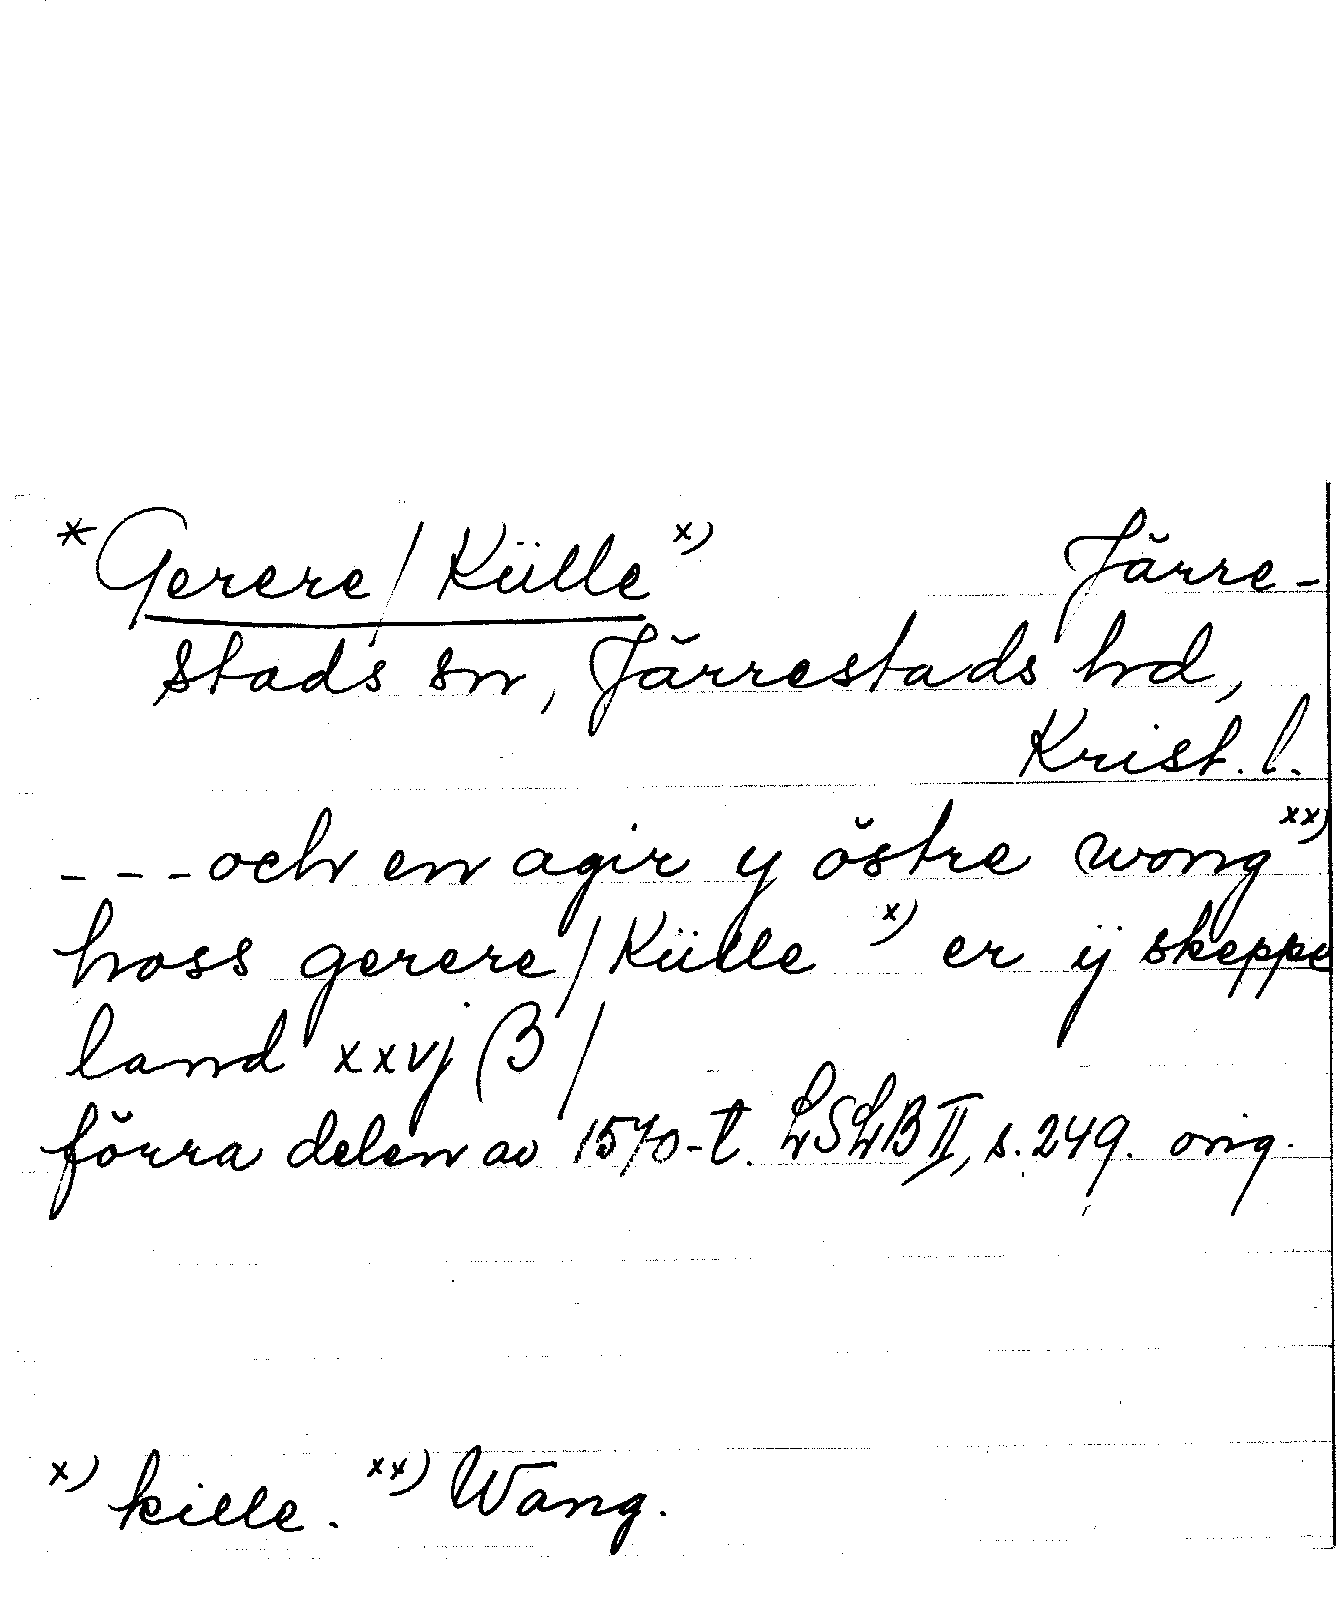 *Gerere/Külle x) Järre-
stads sn, Järrestads hd,
Krist. l.
---och en agir y östre wong xx)
hoss gerere/Külle x) er ij skeppe
land xxvj β/
förra delen av 1570-t. LSLB II, s. 249. orig.
x) kille. xx) Wang.